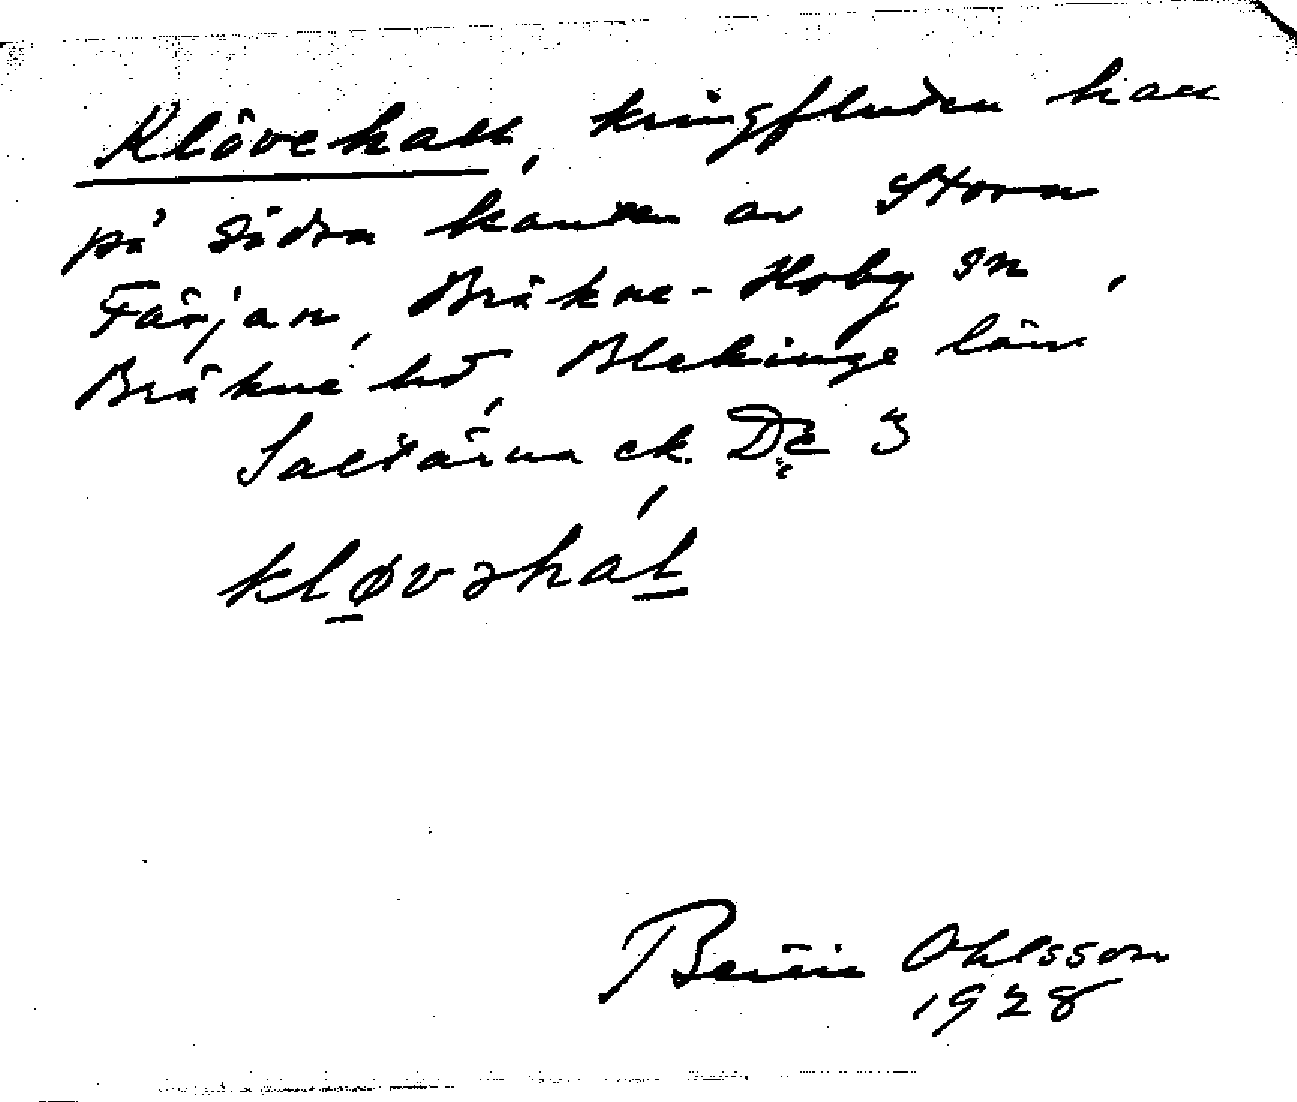 Klövehall, kringfluten hall
på södra kanten av Stora
Färjan, Bräkne-Hoby sn,
Bräkne hd, Blekinge län
Saltärna ek. De 3
kløvəhal
Bertil Ohlsson
1928